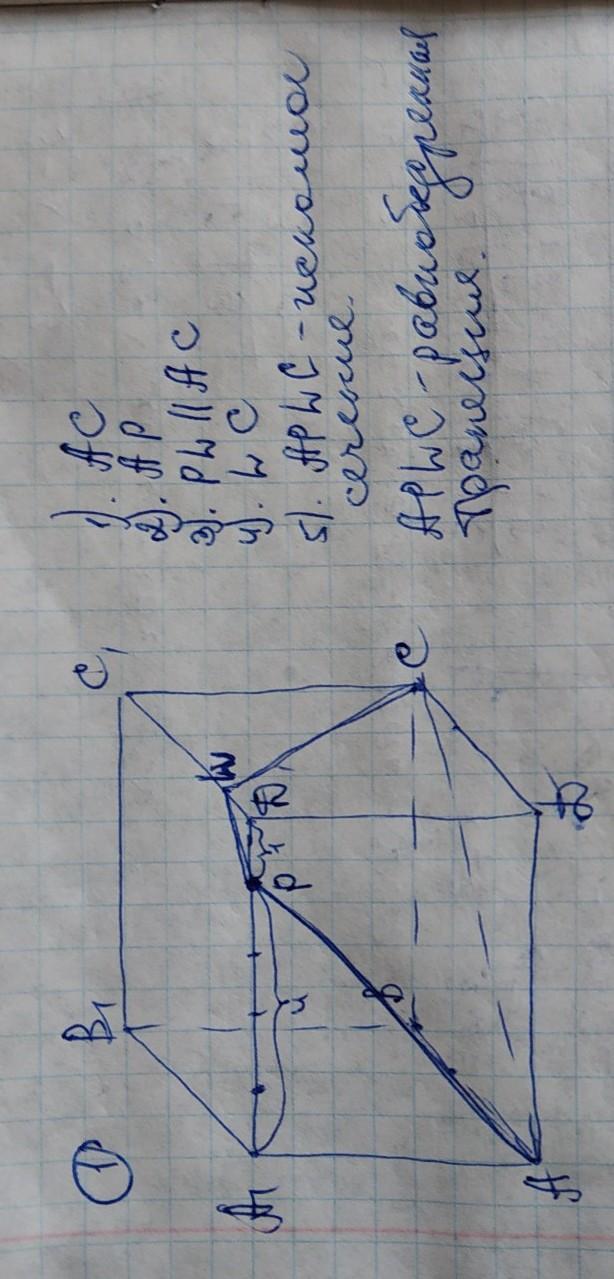 ①
B₁
C₁
A₁
W
D₁
P
4
1
B
C
A
D
1). AC
2). AP
3). PW || AC
4). WC
5). APWC - искомое
сечение.
APWC - равнобедренная
трапеция.